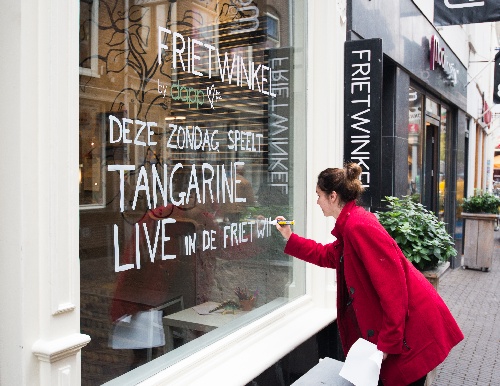 FRIETWINKEL
by dapp
DEZE ZONDAG SPEELT
TANGARINE
LIVE IN DE FRIETWI
FRIETWINKEL
FRIETWINKEL